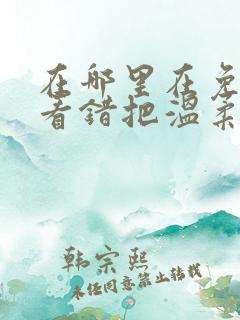 在哪里在免
看错把温柔
韩宗熙
未经同意禁止转载